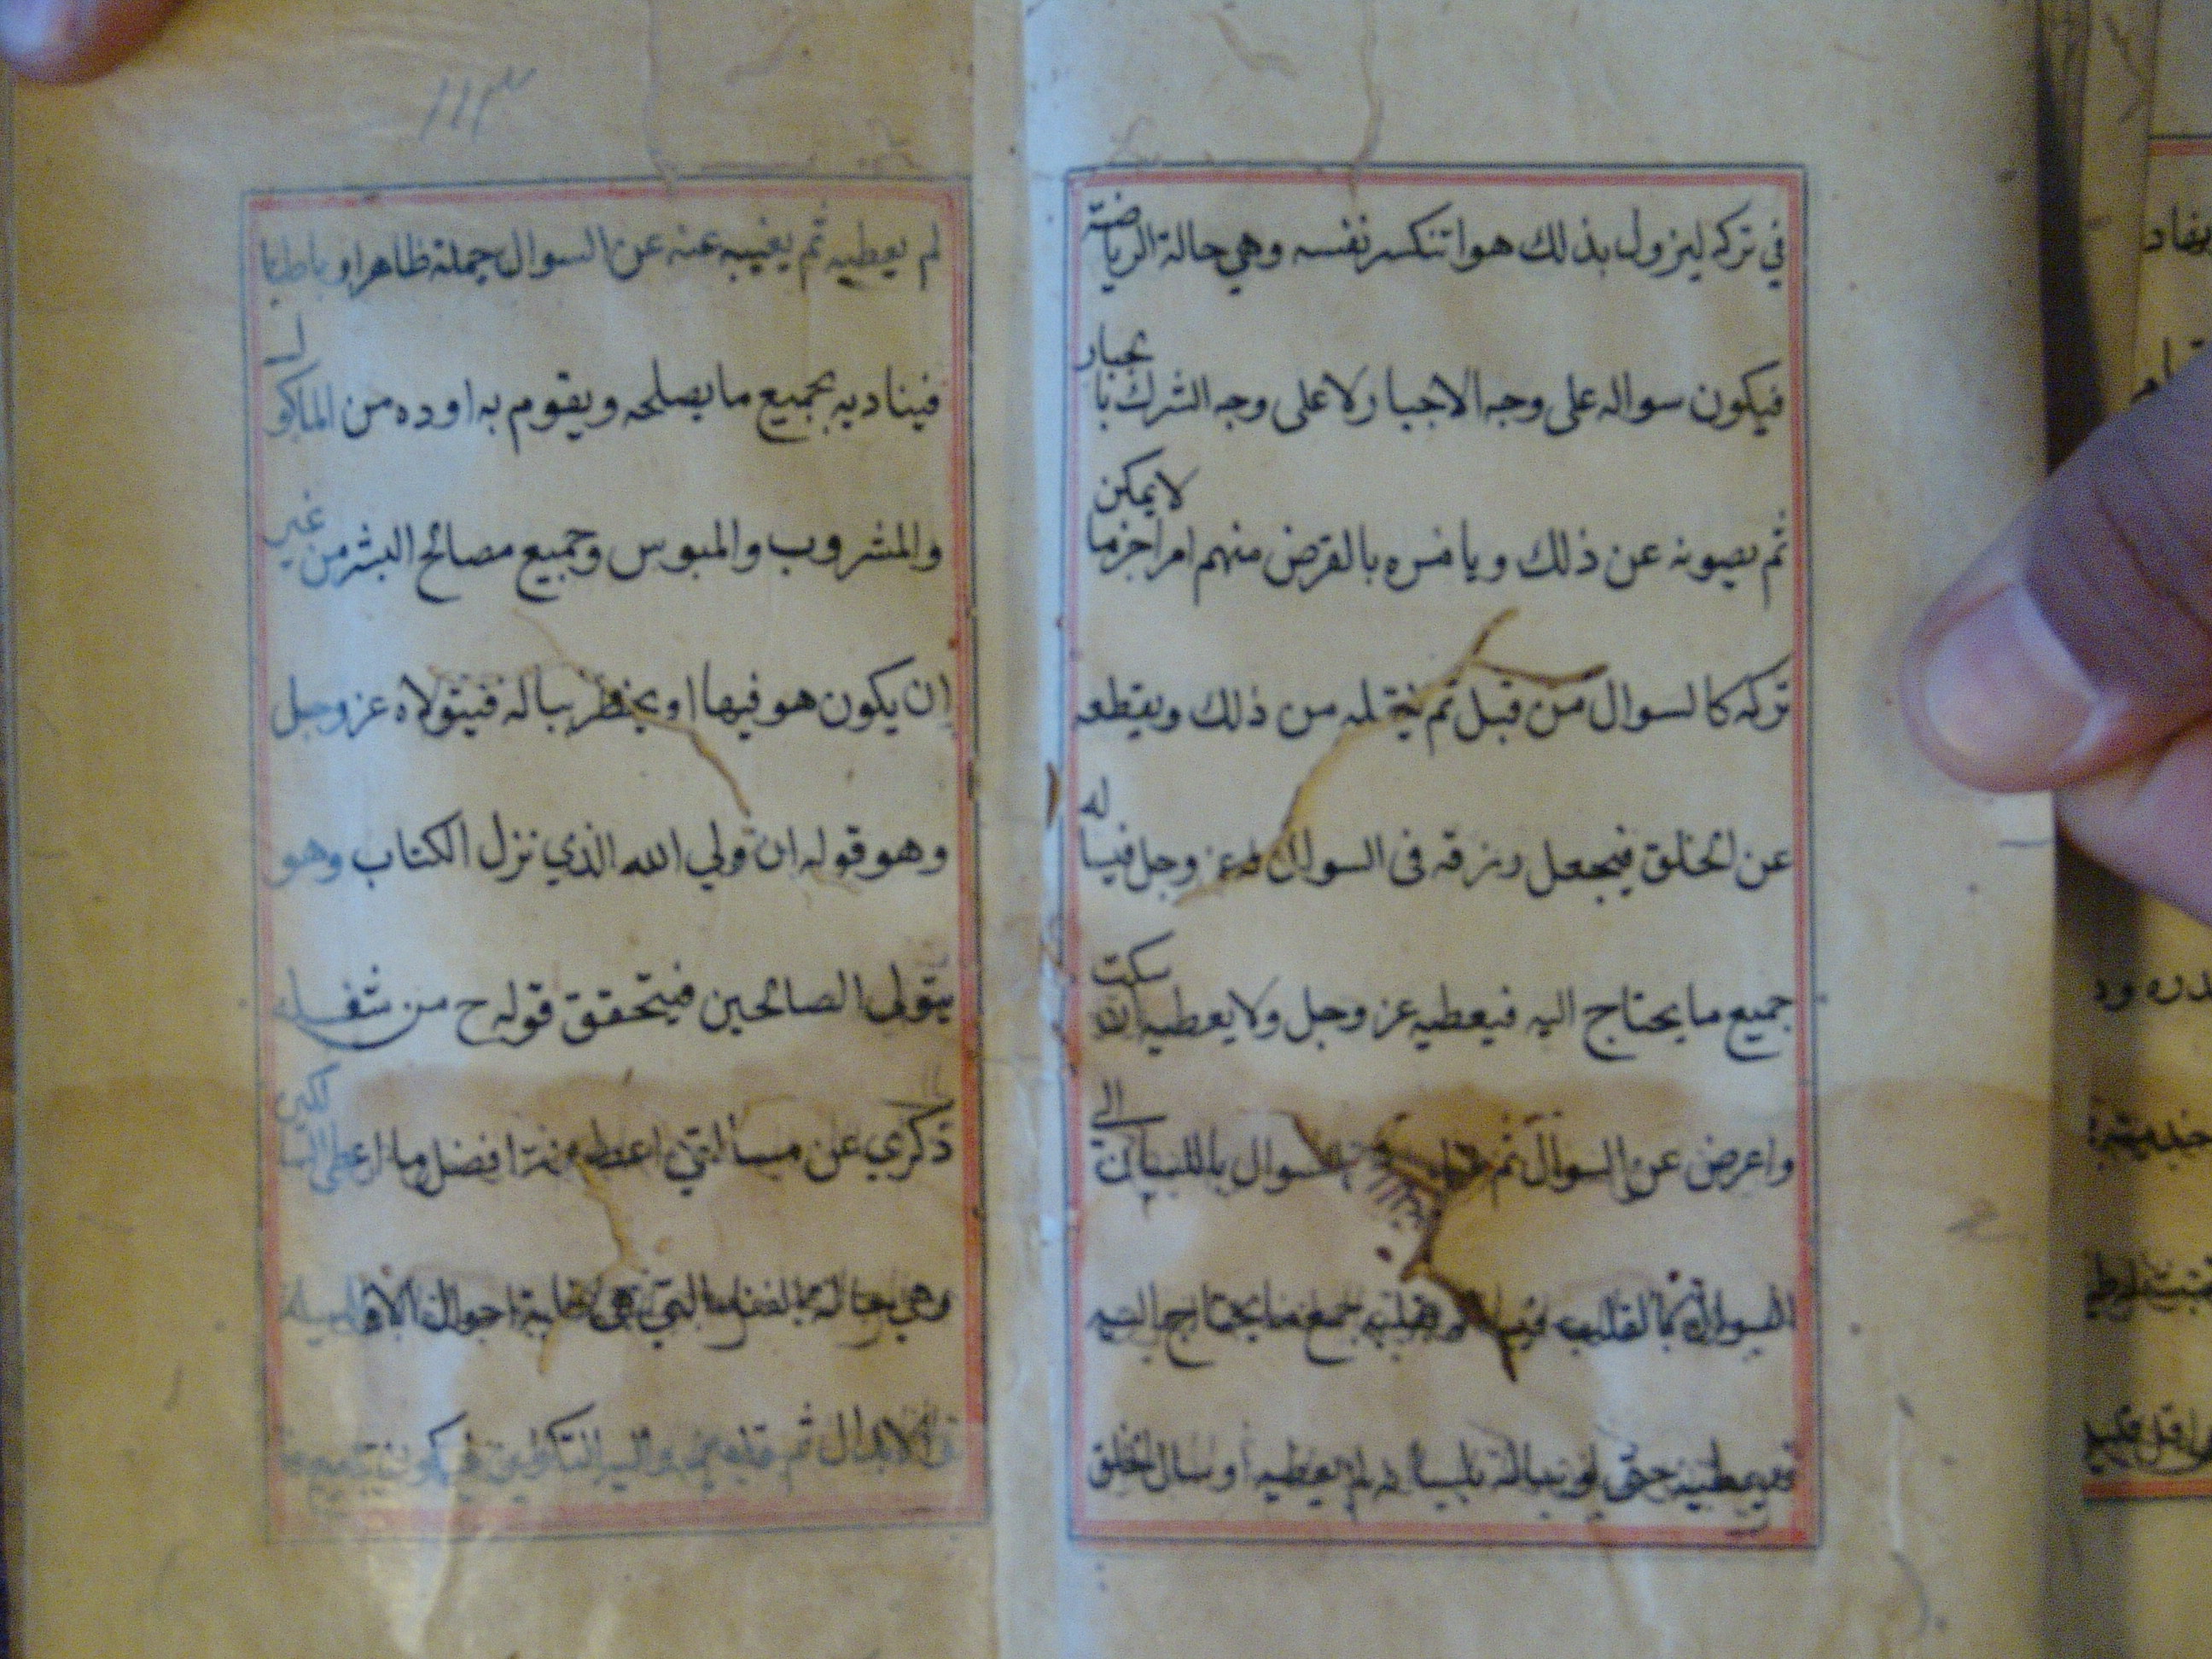 في تركه ليزول بذلك هوا تنكسر نفسه وهي حالة الرياضة
فيكون سواله على وجه الاجبار لا على وجه الشرك با
بجبار
ثم يصونه عن ذلك ويامره بالقرض منهم امرا جزما
لا يمكن
تركه كالسوال من قبل ثم من ذلك ويقطعه
عن الخلق فيجعل رزقه فى السوال له عز وجل فيسا
له
جميع ما يحتاج اليه فيعطيه عز وجل ولا يعطيه ان
سكت
واعرض عن السوال ثم السوال باللسان
الى
السوال بالقلب بقلبه جميع ما يحتاج اليه
فيعطيه حتى لم يعطيه او سال الخلق
١١٣
لم يعطيه ثم يغيبه عنه عن السوال جملة ظاهرا وباطنا
فيناديه بجميع ما يصلحه ويقوم به اوده من الماكو
ل
والمشروب والملبوس وجميع مصالح البشر من
غير
ان يكون هو فيها او يخطر بباله فيتولاه عز وجل
وهو قوله ان ولي الله الذي نزل الكتاب وهو
يتولى الصالحين فيتحقق قوله ح من شغله
ذكري عن مسالتي اعطيته افضل ما اعطى السا
ئلين
وهي حالة الفنا التي هي غاية احوال الاوليا
ثم